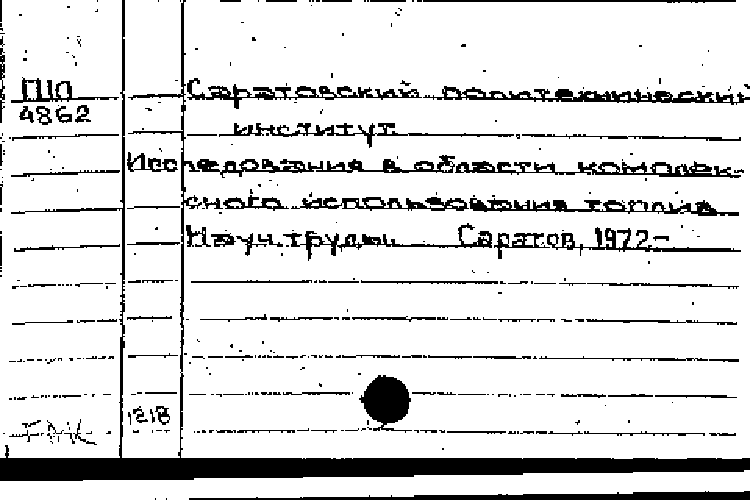 ПШ Саратовский политехнический
4862
институт.
Исследования в области комплек-
сного использования топлив
Науч. труды. Саратов, 1972-
1218